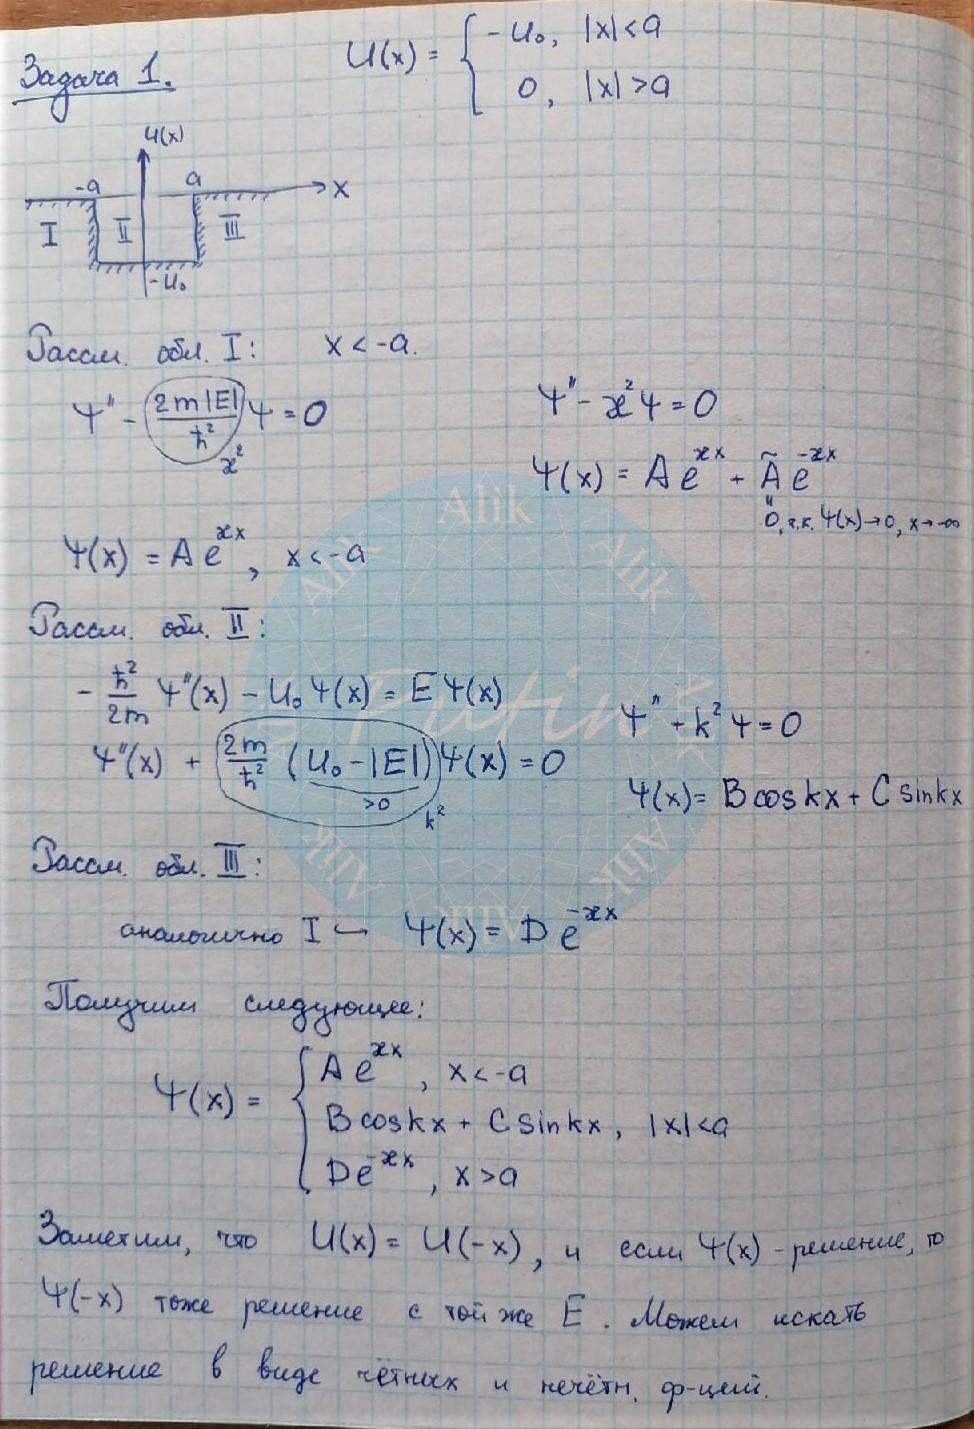 Задача 1.
U(x) = { -U₀, |x|<a
0, |x|>a
U(x)
-a a x
I II III
-U₀
Рассм. обл. I: x < -a.
Ψ'' - (2m|E|/ħ²) Ψ = 0
æ²
Ψ'' - æ²Ψ = 0
Ψ(x) = A e^{æx} + Ã e^{-æx}
0, т.к. Ψ(x)→0, x→-∞
Ψ(x) = A e^{æx}, x < -a
Рассм. обл. II:
- ħ²/2m Ψ''(x) - U₀Ψ(x) = EΨ(x)
Ψ'' + k²Ψ = 0
Ψ''(x) + 2m/ħ² (U₀ - |E|)Ψ(x) = 0
>0 k²
Ψ(x) = B cos kx + C sin kx
Рассм. обл. III:
аналогично I → Ψ(x) = D e^{-æx}
Получим следующее:
Ψ(x) = { A e^{æx}, x < -a
B cos kx + C sin kx, |x|<a
D e^{-æx}, x > a
Заметим, что U(x) = U(-x), и если Ψ(x) - решение, то
Ψ(-x) тоже решение с той же E. Можем искать
решение в виде чётных и нечётн. ф-ций.
Alik
Alik
Alik
Putin
Alik
Alik
Alik
Alik